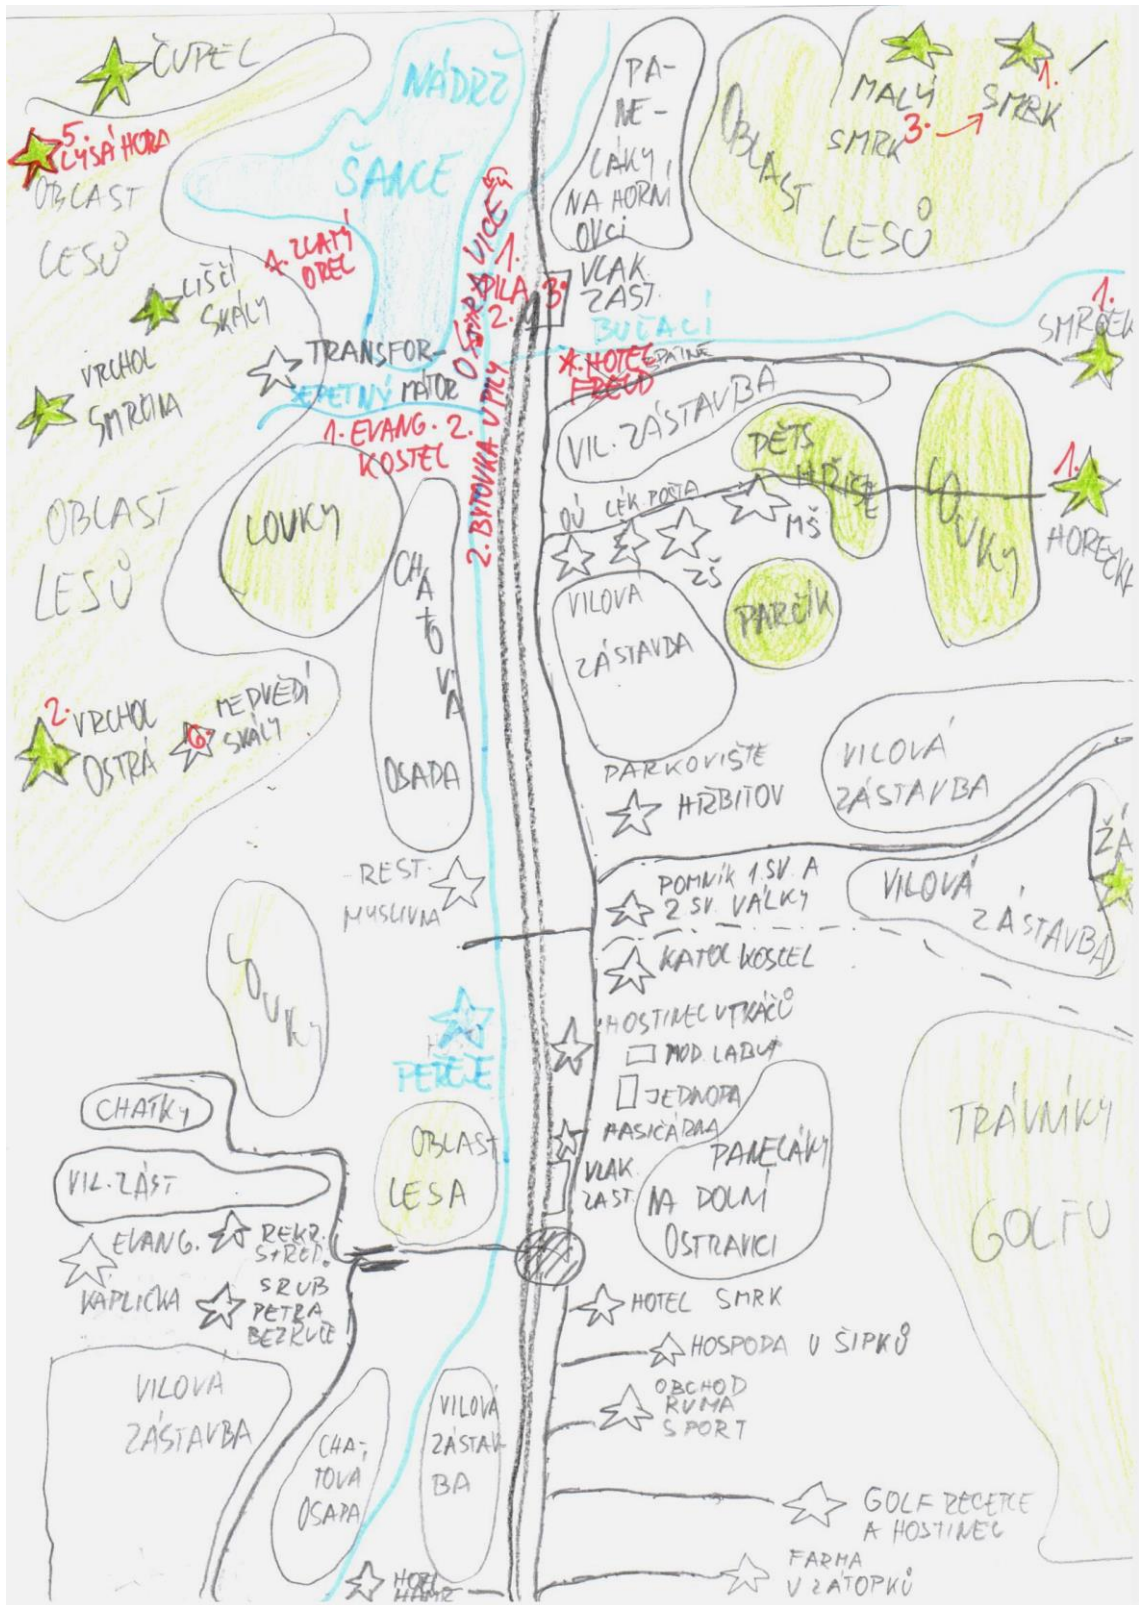 ČUPEL
NÁDRŽ
ŠANCE
PA-
NE-
LÁKY
NA HORNÍ
MALÝ
SMRK
3.
1.
SMRK
OBLAST
LESŮ
5.
LYSÁ HORA
OBLAST
LESŮ
ZLATÝ
OREL
LIŠČÍ
SKÁLY
1.
PILA
2.
3.
VLAK.
ZAST.
BUČACÍ
1.
SMRČEK
VRCHOL
SMRČINA
TRANSFOR-
MÁTOR
SEPETNÝ
HOTEL
FREUD
VIL. ZÁSTAVBA
1. EVANG. 2.
KOSTEL
2. BYTOVKA U PILY
DĚTS
HŘIŠTE
OÚ
LÉK.
POŠTA
MŠ
ZŠ
LOUKY
1.
HOREČKY
OBLAST
LESŮ
LOUKY
CHATOVÁ
OSADA
VILOVÁ
ZÁSTAVBA
PARČÍK
2.
VRCHOL
OSTRÁ
6.
MEDVĚDÍ
SKÁLY
PARKOVIŠTE
HŘBITOV
VILOVÁ
ZÁSTAVBA
ŽÁ
REST.
MYSLIVNA
POMNÍK 1.SV. A
2 SV. VÁLKY
VILOVÁ
ZÁSTAVBA
KATOL KOSTEL
LOUKY
HOSTINEC U TKÁČŮ
PEŘEJE
MOD. LABUŤ
JEDNOTA
HASIČÁRNA
CHATKY
OBLAST
LESA
VLAK
ZAST.
PANELÁKY
NA DOLNÍ
OSTRAVICI
TRÁVNÍKY
GOLFU
VIL. ZÁST
EVANG.
KAPLIČKA
REKR.
STŘED.
SRUB
PETRA
BEZRUČE
HOTEL SMRK
HOSPODA U ŠIPKŮ
OBCHOD
RUMA
SPORT
VILOVÁ
ZÁSTAVBA
CHA-
TOVÁ
OSADA
VILOVÁ
ZÁSTAV-
BA
GOLF RECEPCE
A HOSTINEC
FARMA
U ZÁTOPKŮ